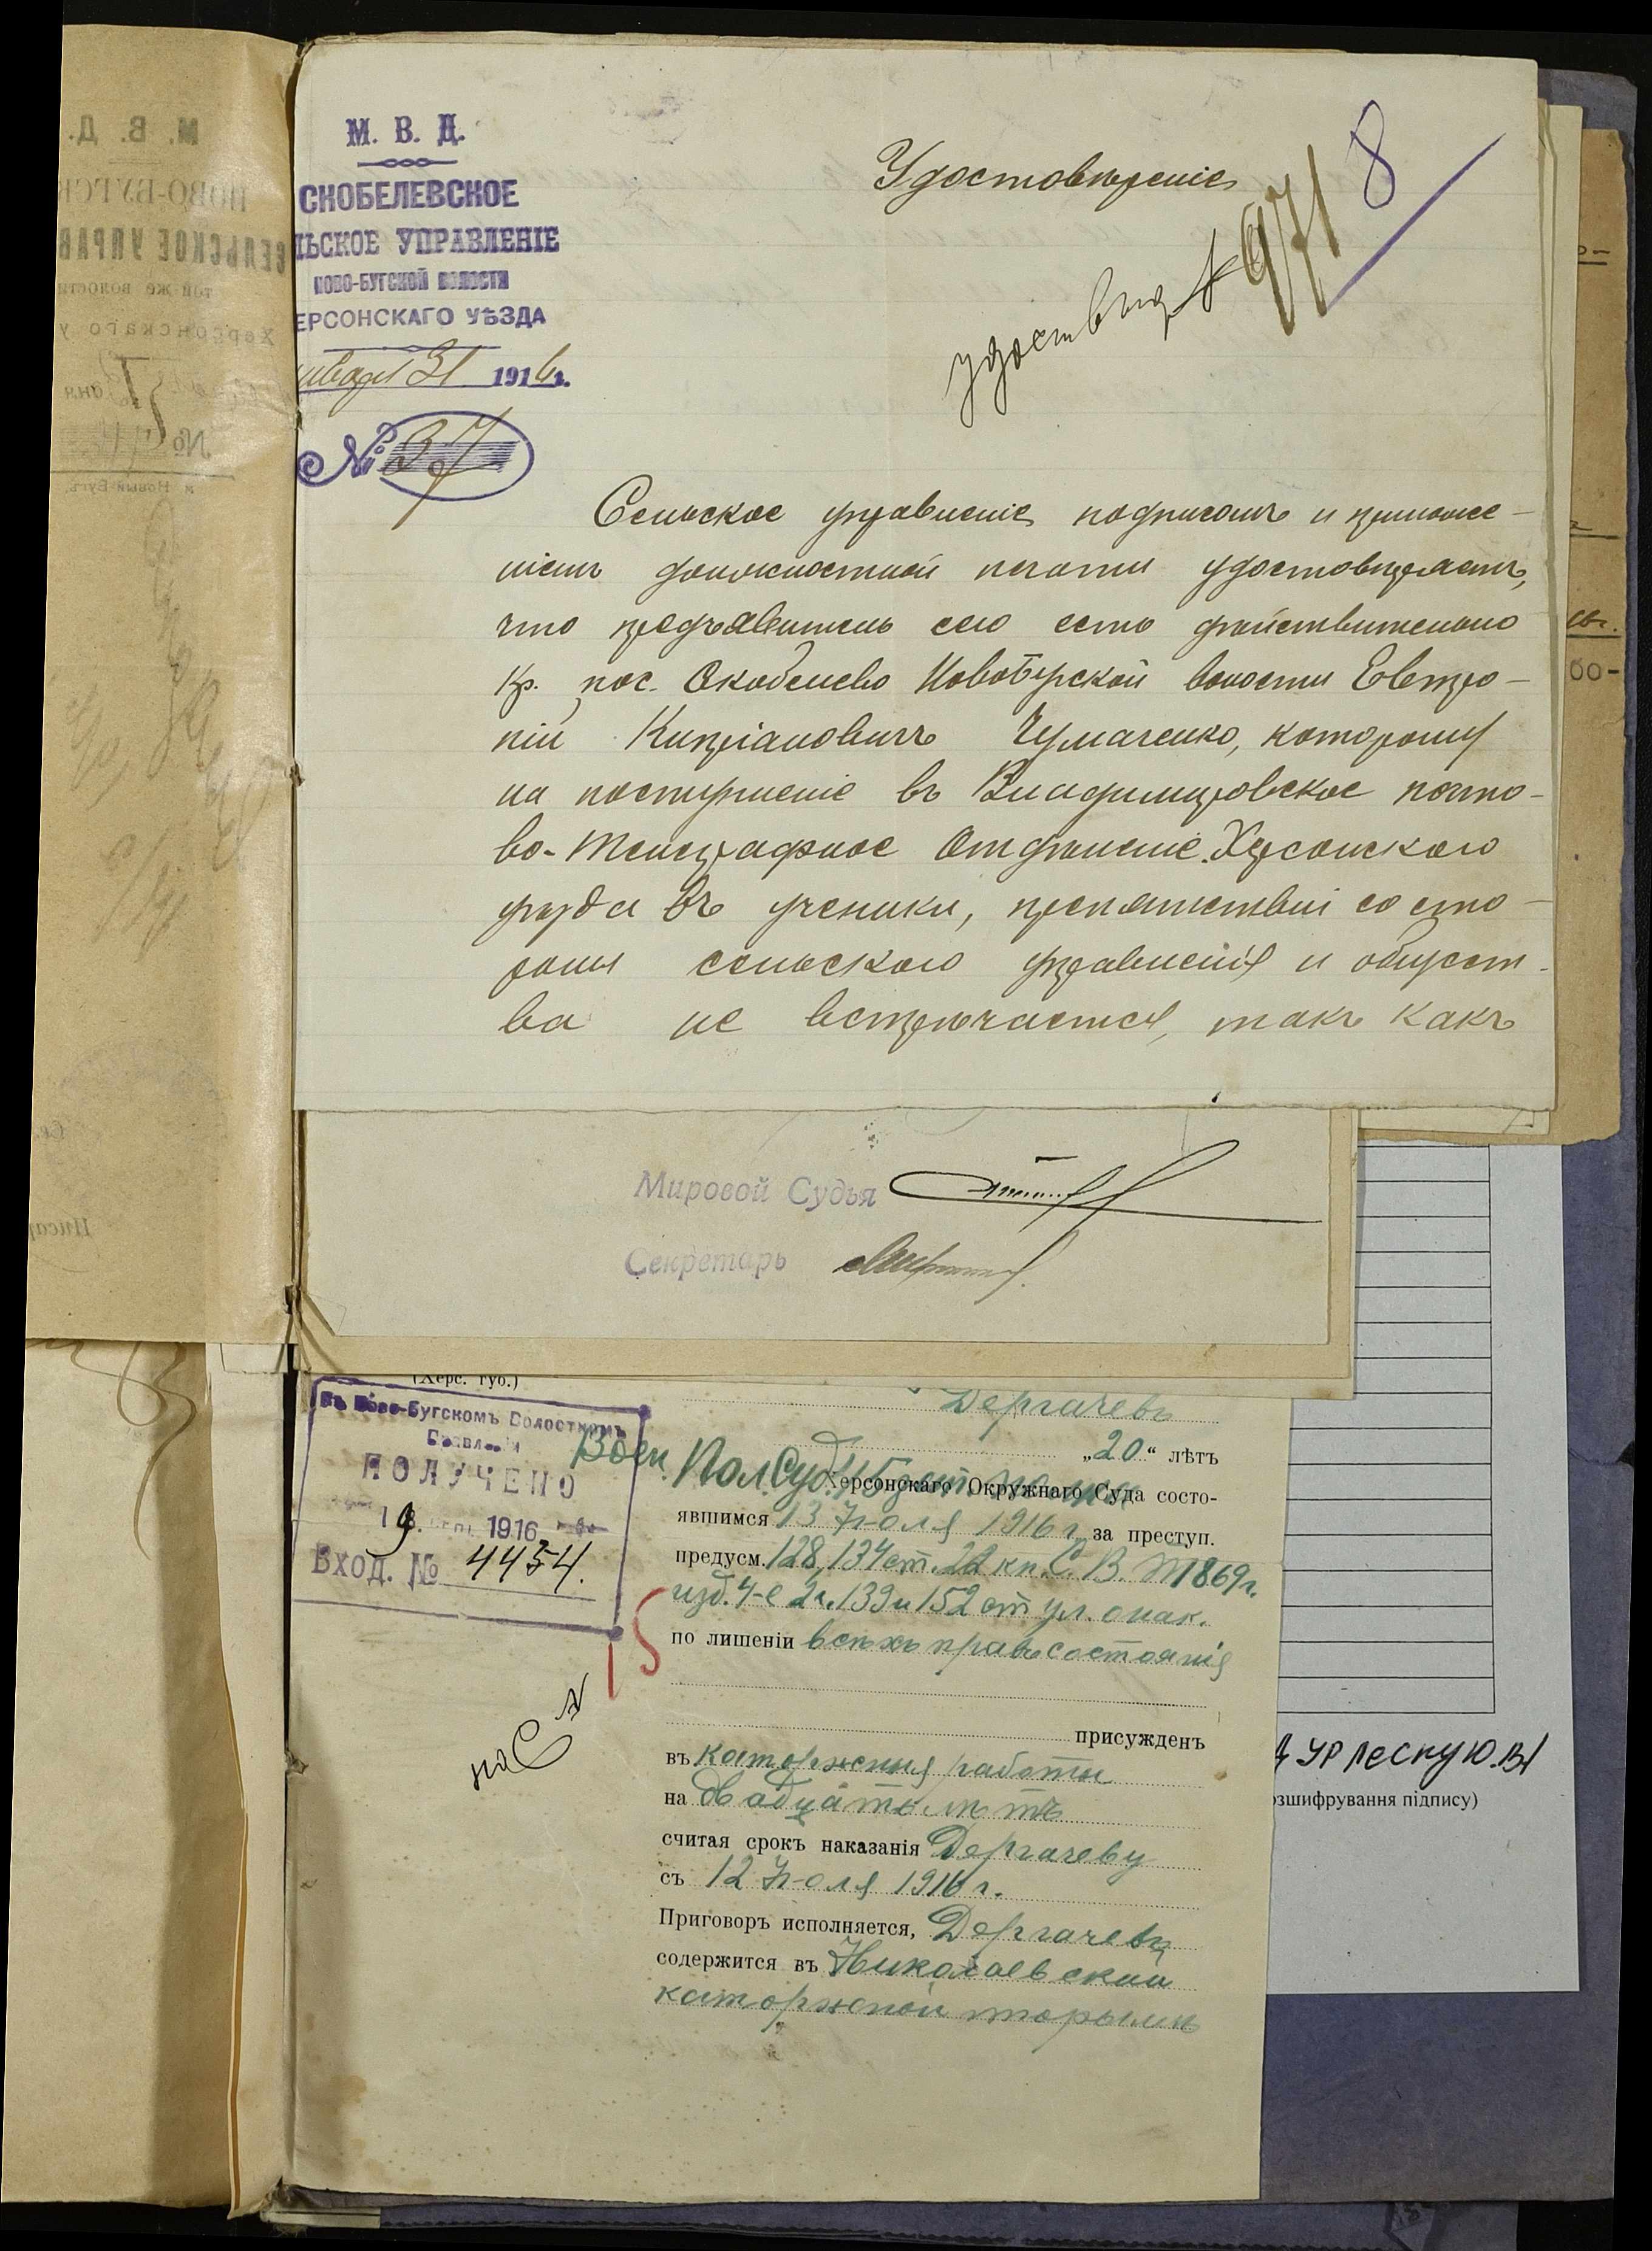 М. В. Д.
СКОБЕЛЕВСКОЕ
ЛЬСКОЕ УПРАВЛЕНІЕ
НОВО-БУГСКОЙ ВОЛОСТИ
ЕРСОНСКАГО УѢЗДА
нваря 31 1916 г.
№ 37
Удостовѣреніе
8
971
Сельское управленіе подписомъ и приложе-
ніемъ должностной печати удостовѣряетъ,
что предъявитель сего есть дѣйствительно
Кр. пос. Скобелево Новобугской волости Евтро-
пій Кипріановичъ Чумаченко, которому
на поступленіе въ Владимировское почто-
во-Телеграфное Отдѣленіе Херсонскаго
уѣзда въ ученики, препятствій со сто-
роны сельскаго управленія и общест-
ва не встрѣчается, такъ какъ
Мировой Судья
Секретарь
(Херс. губ.)
Въ Ново-Бугскомъ Волостномъ
Правленіи
ПОЛУЧЕНО
19 1916
Вход. № 4454.
15
Дергачевъ
„20“ лѣтъ
Воен. Пол. Суд.
Херсонскаго Окружнаго Суда состо-
явшимся 13 Іюля 1916 г. за преступ.
предусм. 128, 134 ст. 22 кн. С. В. П 1869 г.
изд. 4-е 2 ч. 139 и 152 ст ул. о нак.
по лишеніи всѣхъ правъ состоянія
присужденъ
въ каторжныя работы
на двадцать лѣтъ
считая срокъ наказанія Дергачеву
съ 12 Іюля 1916 г.
Приговоръ исполняется, Дергачевъ
содержится въ Николаевской
каторжной тюрьмѣ
зшифрування підпису)
М. В. Д.
НОВО-БУГСК
СЕЛЬСКОЕ УПРАВ
той же волости
Херсонскаго у
дня
№
м Новый-Бугъ
Писар